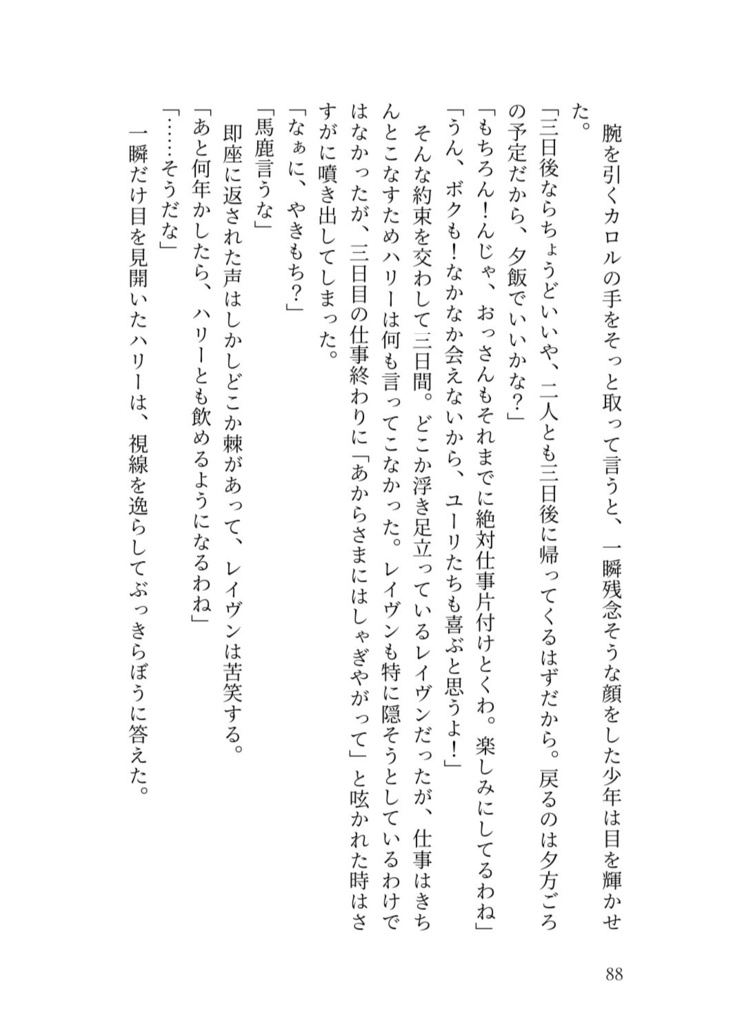 腕を引くカロルの手をそっと取って言うと、一瞬残念そうな顔をした少年は目を輝かせ
た。
「三日後ならちょうどいいや、二人とも三日後に帰ってくるはずだから。戻るのは夕方ごろ
の予定だから、夕飯でいいかな？」
「もちろん！んじゃ、おっさんもそれまでに絶対仕事片付けとくわ。楽しみにしてるわね」
「うん、ボクも！なかなか会えないから、ユーリたちも喜ぶと思うよ！」
　そんな約束を交わして三日間。どこか浮き足立っているレイヴンだったが、仕事はきち
んとこなすためハリーは何も言ってこなかった。レイヴンも特に隠そうとしているわけで
はなかったが、三日目の仕事終わりに「あからさまにはしゃぎやがって」と呟かれた時はさ
すがに噴き出してしまった。
「なぁに、やきもち？」
「馬鹿言うな」
　即座に返された声はしかしどこか棘があって、レイヴンは苦笑する。
「あと何年かしたら、ハリーとも飲めるようになるわね」
「……そうだな」
　一瞬だけ目を見開いたハリーは、視線を逸らしてぶっきらぼうに答えた。
88